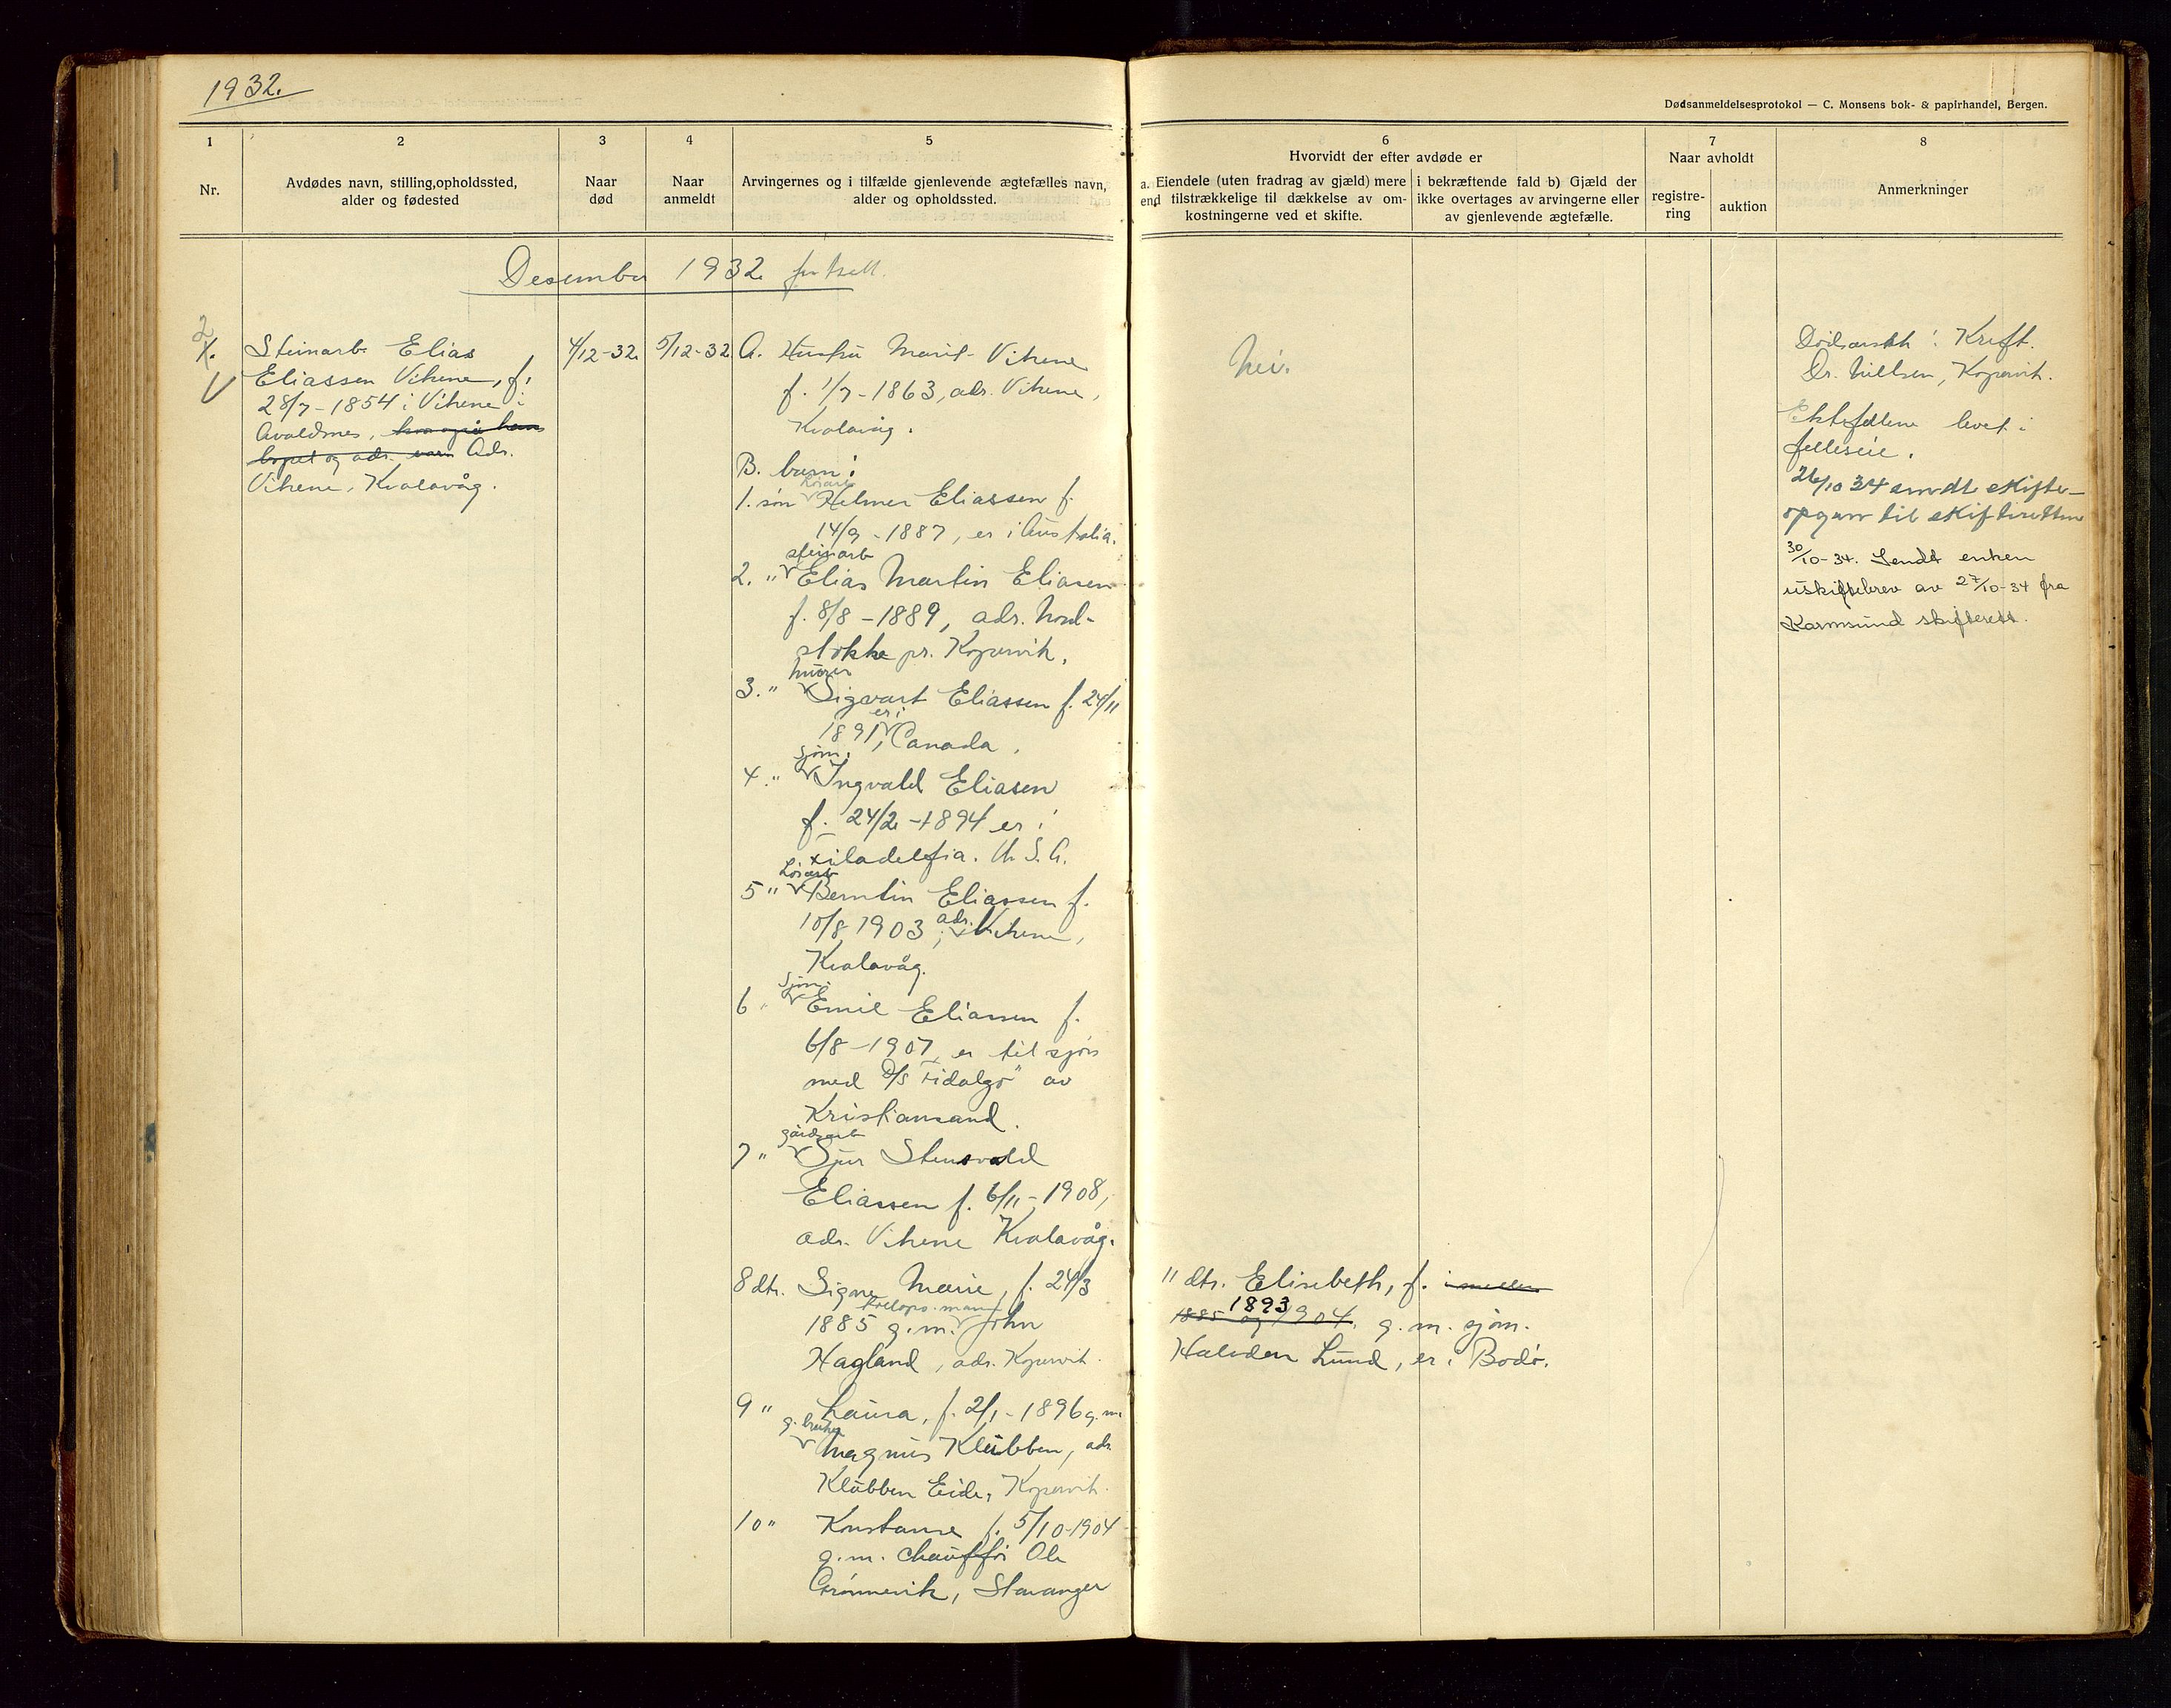 1932.
Dødsanmeldelsesprotokol — C. Monsens bok- & papirhandel, Bergen.
1
Nr.
2
Avdødes navn, stilling, opholdssted,
alder og fødested
3
Naar
død
4
Naar
anmeldt
5
Arvingernes og i tilfælde gjenlevende ægtefælles navn,
alder og opholdssted.
6
Hvorvidt der efter avdøde er
a. Eiendele (uten fradrag av gjæld) mere
end tilstrækkelige til dækkelse av om-
kostningerne ved et skifte.
i bekræftende fald b) Gjæld der
ikke overtages av arvingerne eller
av gjenlevende ægtefælle.
7
Naar avholdt
registre-
ring
auktion
8
Anmerkninger
Desember 1932 fortsatt.
2
1.
Steinarb. Elias
Eliassen Vikene, f.
28/7-1854 i Vikene i
Avaldsnes,
og adr. Adr.
Vikene, Kvalavåg.
4/12-32.
5/12-32
A. Hustru Marit Vikene
f. 1/7-1863, adr. Vikene,
Kvalavåg.
B. barn:
løsarb
1. søn Helmer Eliassen f.
14/9-1887, er i Australia.
steinarb
2. " Elias Martin Eliasen
f. 8/8-1889, adr. Nord-
stokke pr. Kopervik.
murer
3. " Sigvart Eliassen f. 24/11
er i
1891, Canada.
sjøm.
4. " Ingvald Eliasen
f. 24/2-1894 er i
Filadelefia. U. S. A.
Løsarb
5 " Berntin Eliassen f.
10/8 1903, adr. Vikene,
Kvalavåg.
Sjøm.
6 " Emil Eliassen f.
6/8-1907, er til sjøs
med D/S "Fidalgo" av
Kristiansand.
gårdsarb
7 " Sjur Stensvald
Eliassen f. 6/11-1908,
adr. Vikene Kvalavåg.
8 dtr. Signe Marie, f. 24/3
1885 g.m. John
Hagland, adr. Kopervik.
9 " Laura, f. 2/1-1896 g.m.
g. bruker
Magnus Klubben, adr.
Klubben Eide, Kopervik.
10 " Konstanse f. 5/10-1904
g.m. chauffør Ole
Grønnevik, Stavanger
Nei.
11 dtr. Elisebeth, f. imellem
1893
1885 og 1904. g.m. sjøm.
Halvden Lund, er i Bodø.
Dødsårsak: Kreft.
Dr. Nielsen, Kopervik.
Ektefellene levet i
felleseie.
26/10 34 sendt skifte-
opgave til skifteretten
30/10-34. Sendt enken
uskiftebrev av 27/10-34 fra
Karmsund skifterett.